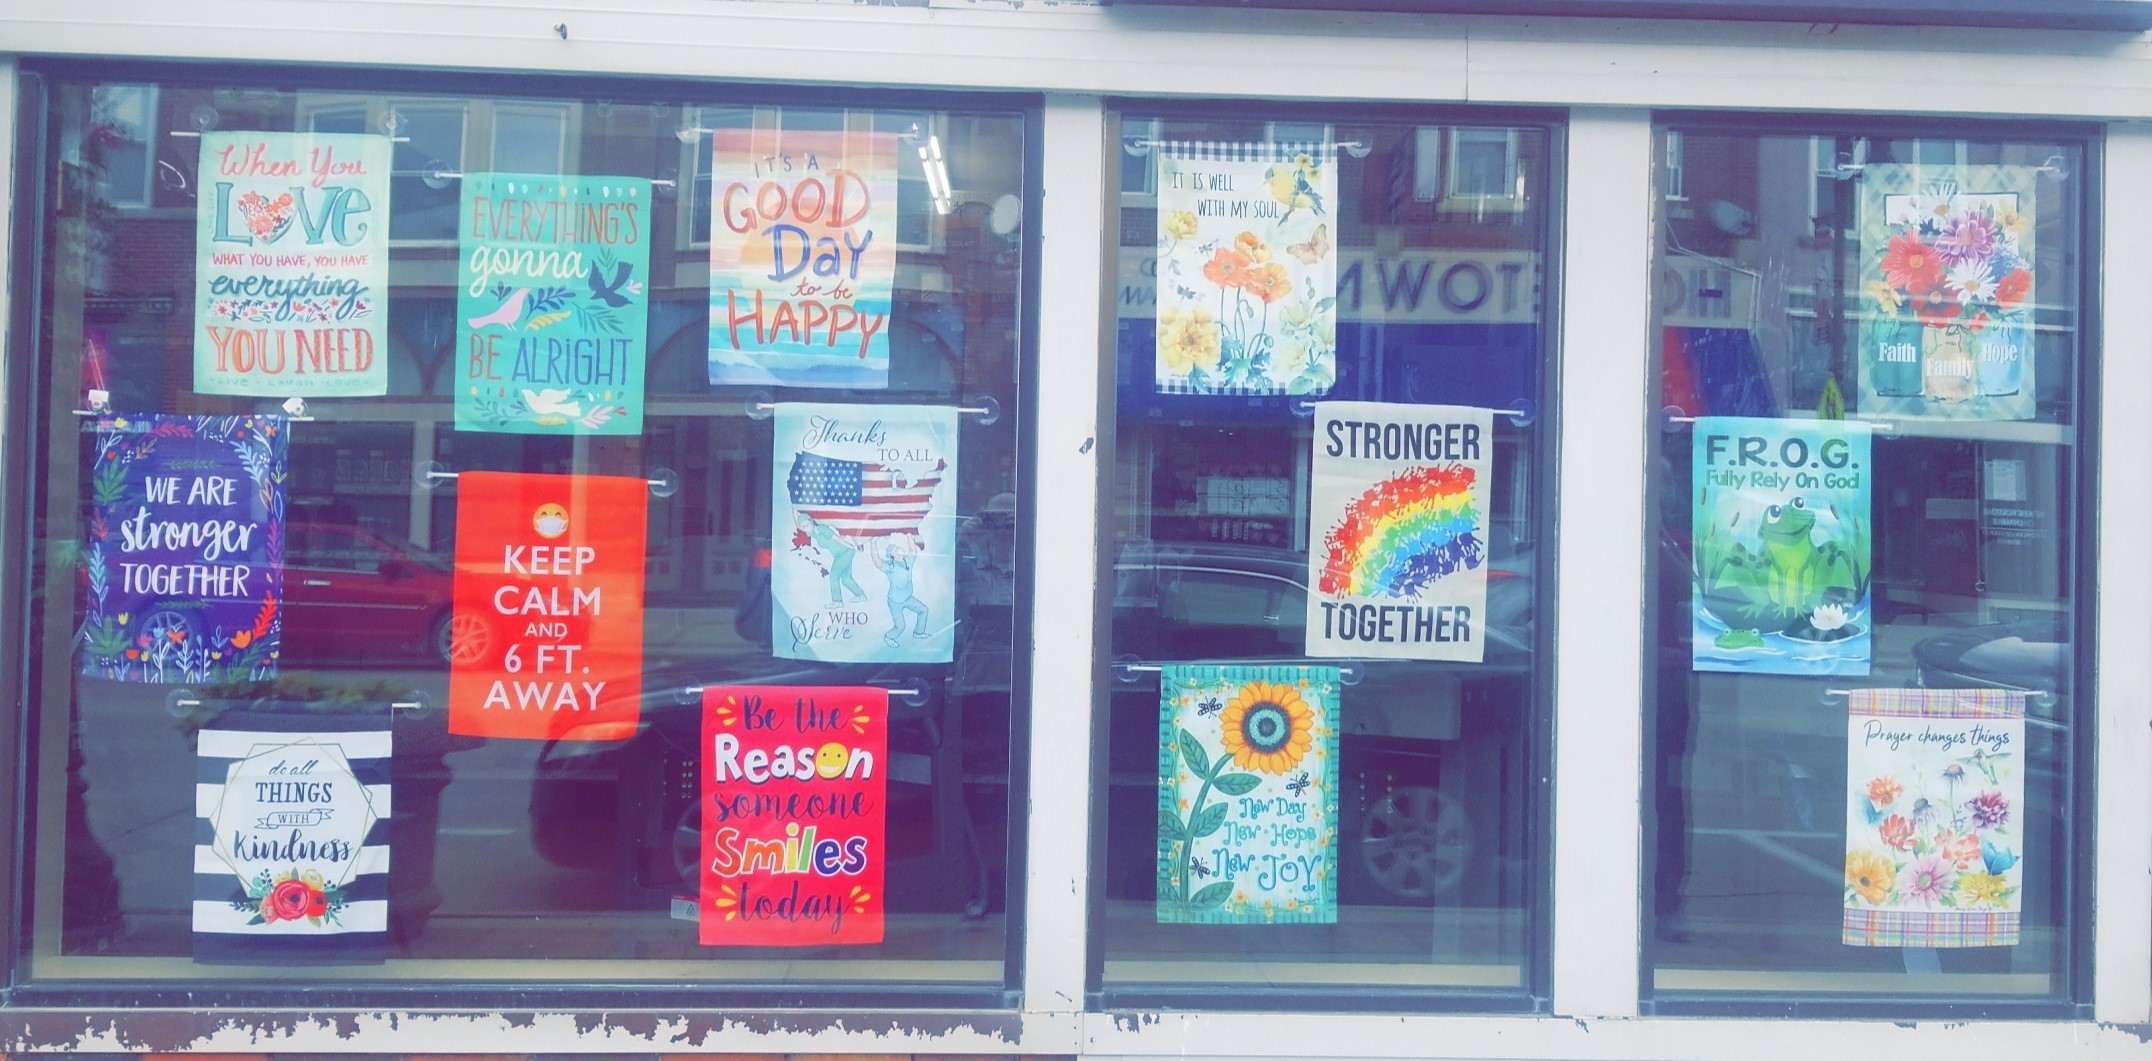 When You
LOVE
WHAT YOU HAVE, YOU HAVE
everything
YOU NEED
LIVE • LAUGH • LOVE
EVERYTHING'S
gonna
BE ALRIGHT
IT'S A
GOOD
DAY
to be
HAPPY
WE ARE
stronger
TOGETHER
KEEP
CALM
AND
6 FT.
AWAY
Thanks
TO ALL
WHO
Serve
do all
THINGS
WITH
Kindness
Be the
Reason
someone
Smiles
today
IT IS WELL
WITH MY SOUL
STRONGER
TOGETHER
New Day
New Hope
New JOY
Faith Family Hope
F.R.O.G.
Fully Rely On God
Prayer changes things